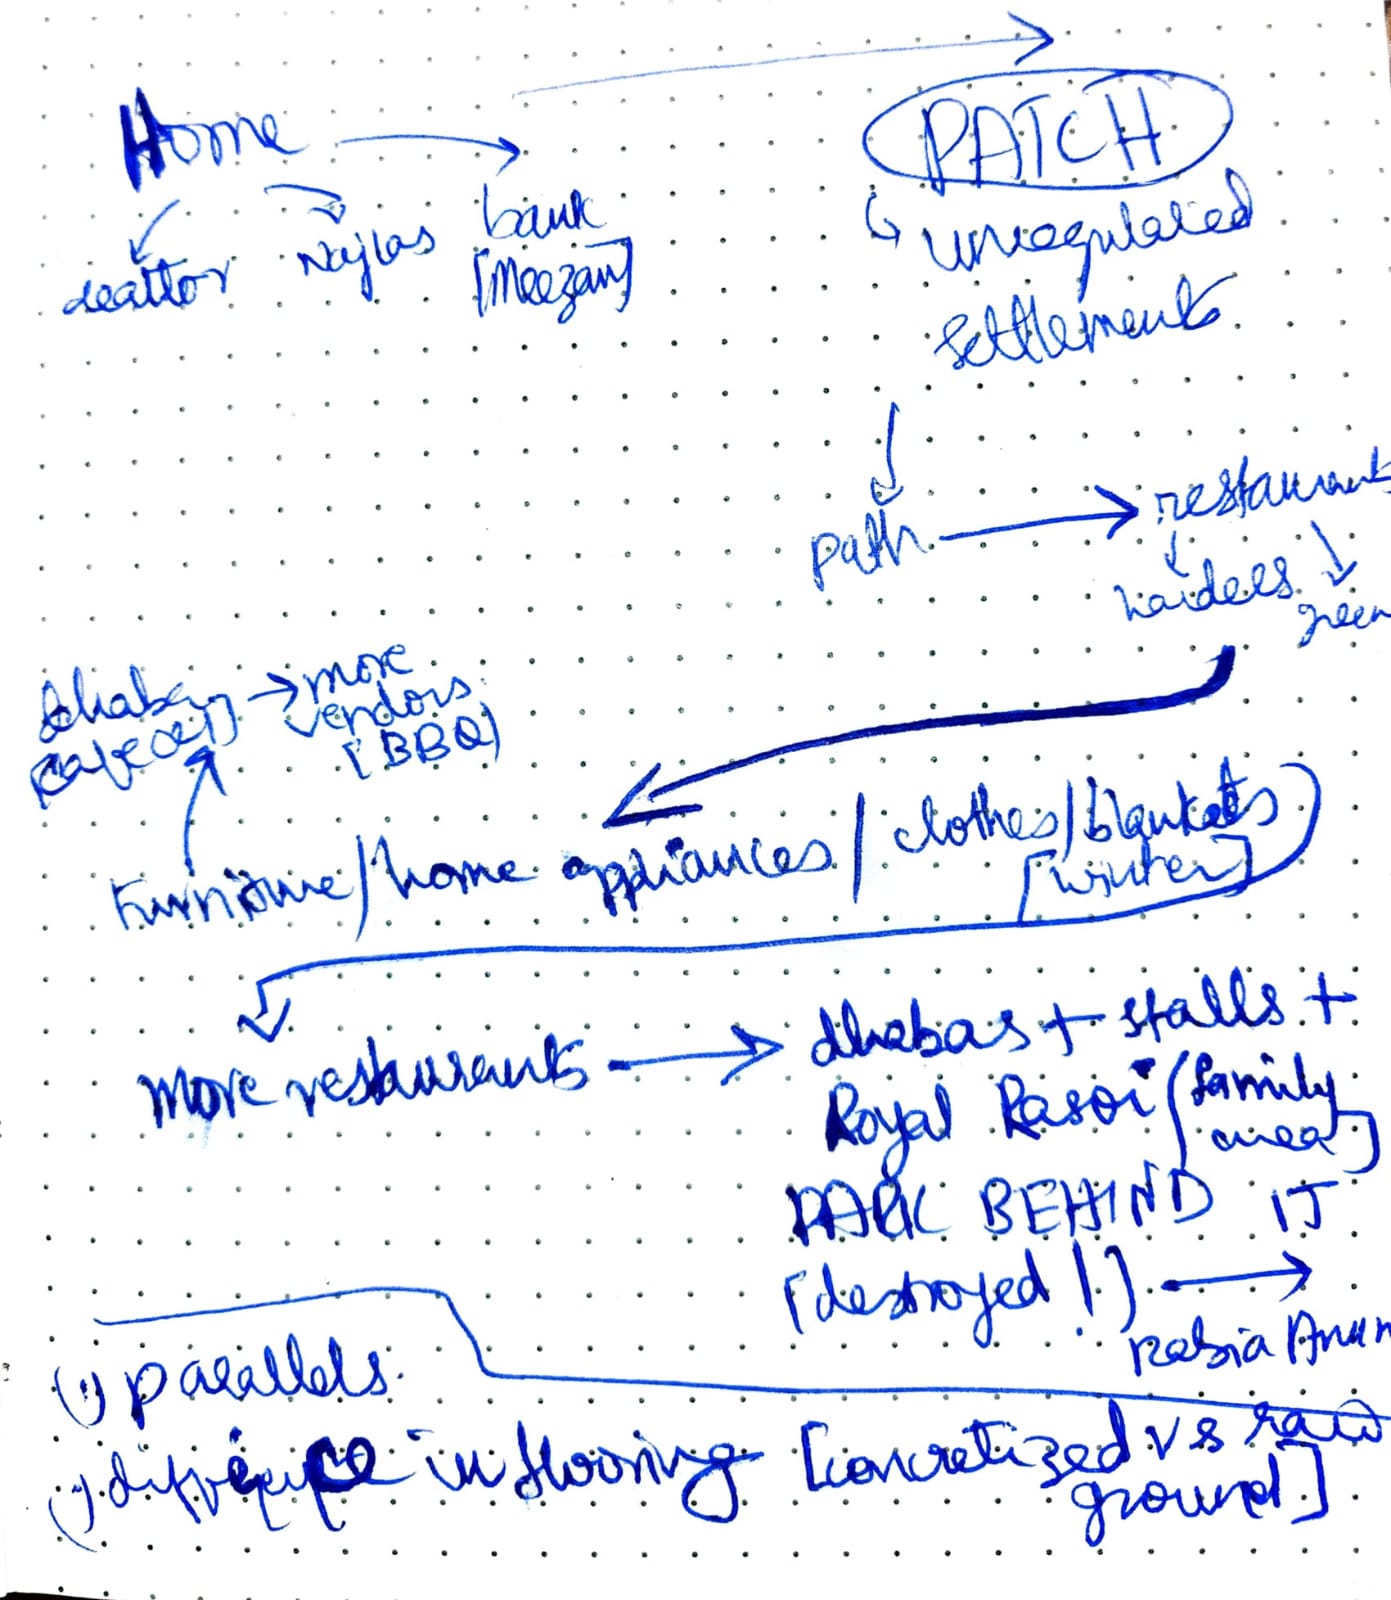 Home → bank
[Meezan]
Najlas
PATCH
↳ unregulated
settlements
path → restaurants
haidees green
dhaba → more
vendors
[BBQ]
furniture/home appliances/clothes/blankets
[winter]
more restaurants → dhabas + stalls +
Royal Rasoi (family
area]
PARK BEHIND IT
[destroyed!] →
Rabia Anum
parallels
difference in flooring [concretized vs raw
ground]